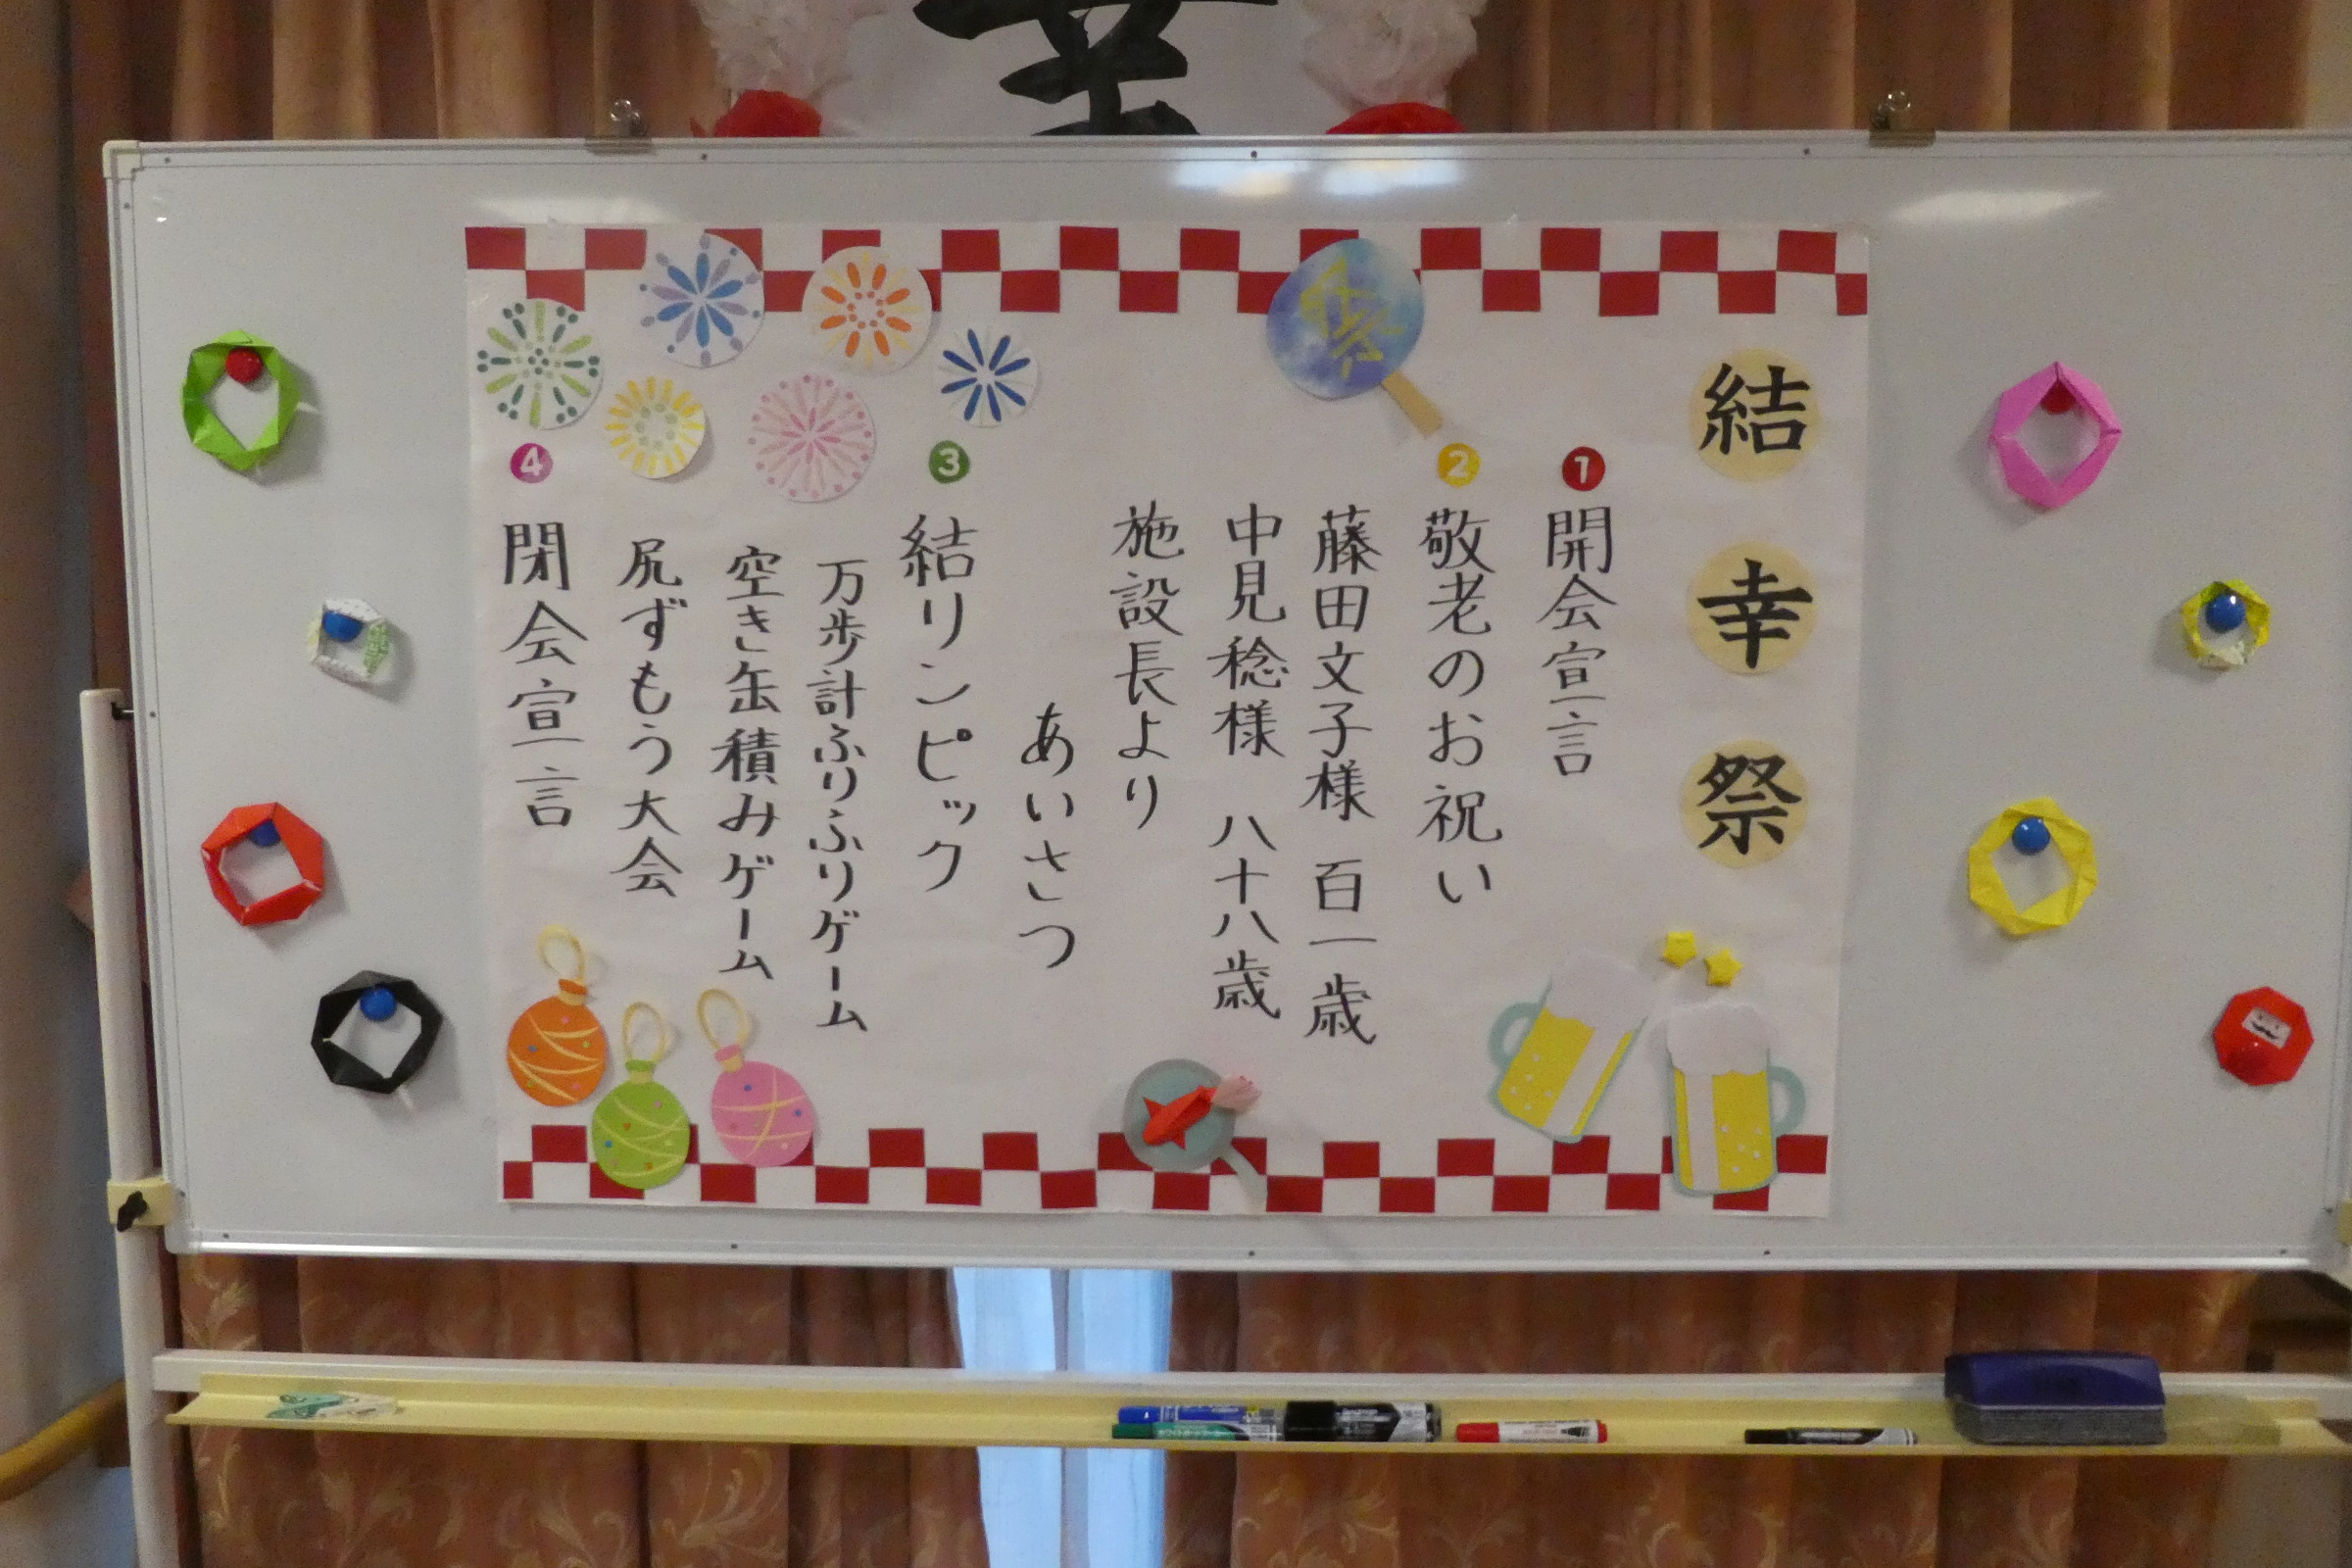 幸
祭
結幸祭
1
開会宣言
2
敬老のお祝い
藤田文子様 百一歳
中見稔様 八十八歳
施設長より
あいさつ
3
結リンピック
万歩計ふりふりゲーム
空き缶積みゲーム
尻ずもう大会
4
閉会宣言